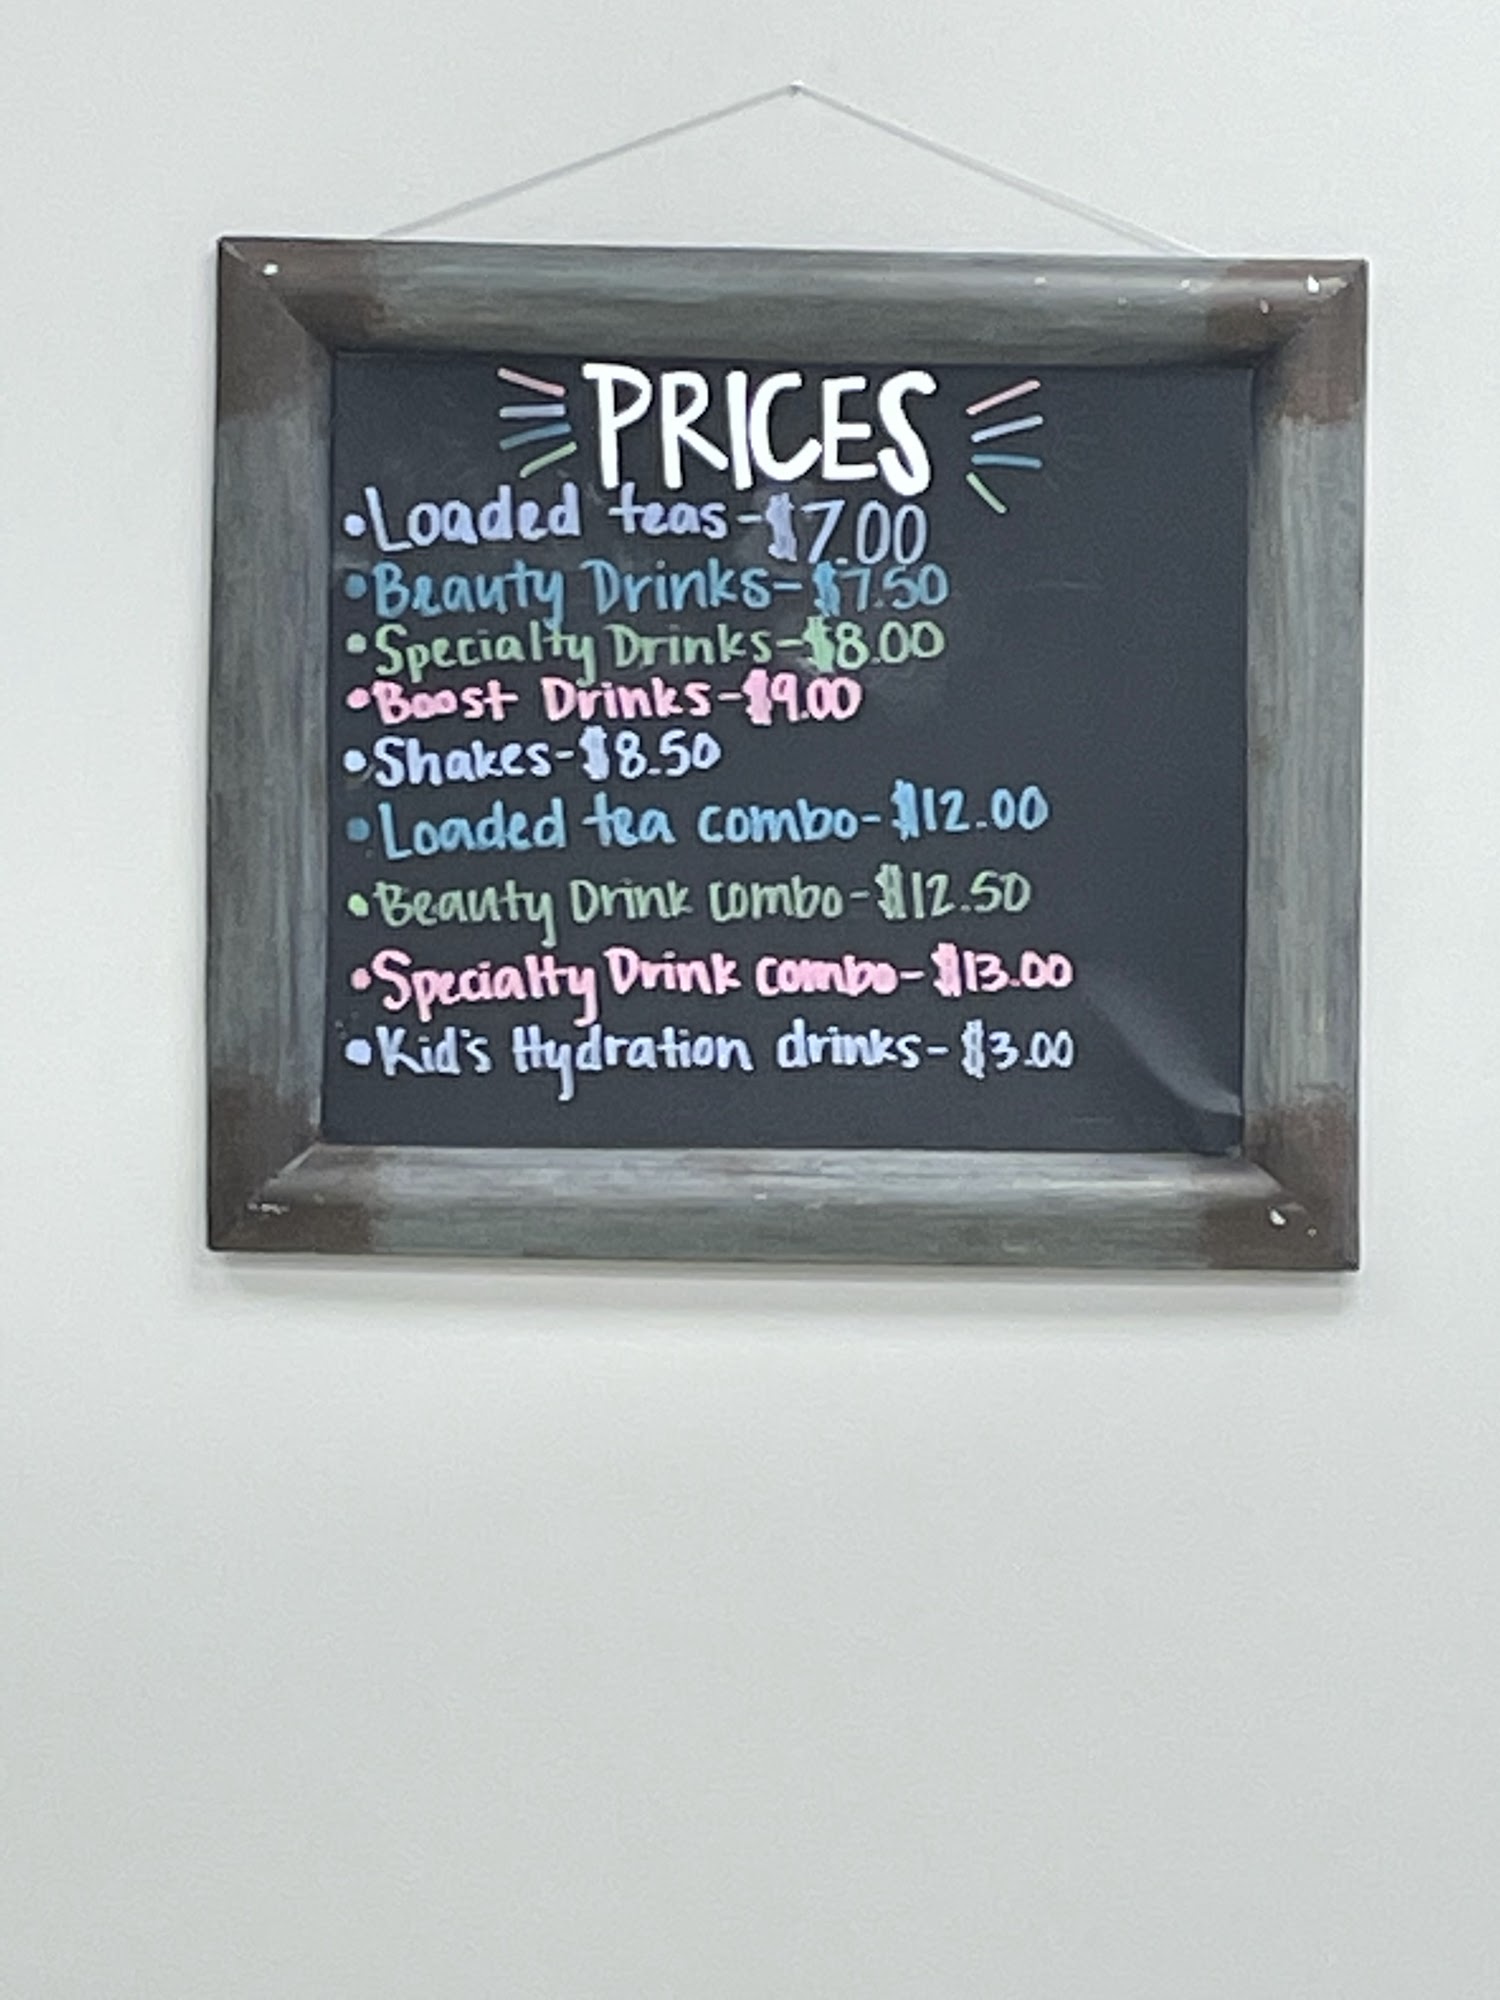 PRICES
•Loaded teas-$7.00
•Beauty Drinks-$7.50
•Specialty Drinks-$8.00
•Boost Drinks-$9.00
•Shakes-$8.50
•Loaded tea combo-$12.00
•Beauty Drink combo-$12.50
•Specialty Drink combo-$13.00
•Kid's Hydration drinks-$3.00